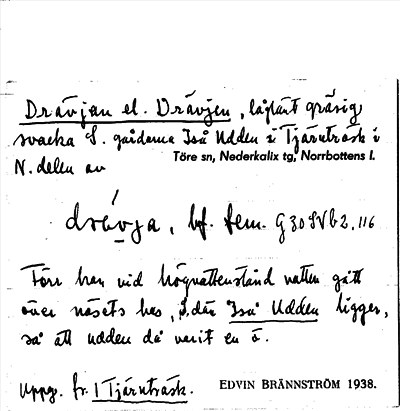 Drävjan el. Drävjen, låglänt gräsig
svacka S. gårdarna Iså Udden i Tjärnträsk i
Töre sn, Nederkalix tg, Norrbottens l.
N. delen av
drävja, bf. fem. G30SVb2, 116
Förr har vid högvattenstånd vatten gått
över näsets bas, S. där Iså Udden ligger,
så att udden då varit en ö.
Uppg. fr. 1 Tjärnträsk. EDVIN BRÄNNSTRÖM 1938.